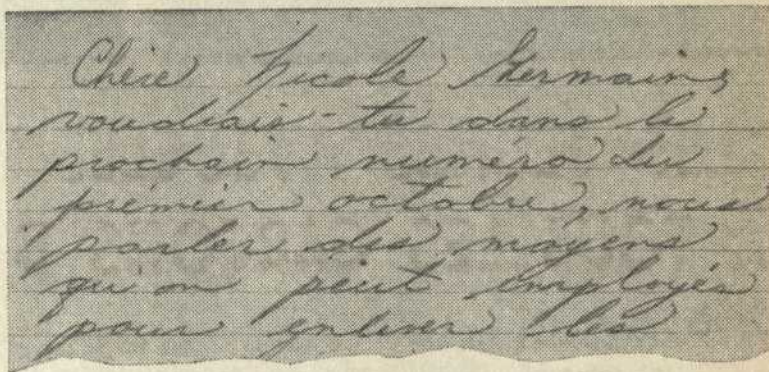 Chère Nicole Germain,
voudrais-tu dans le
prochain numéro du
premier octobre, nous
parler des moyens
qu'on peut employés
pour enlever les